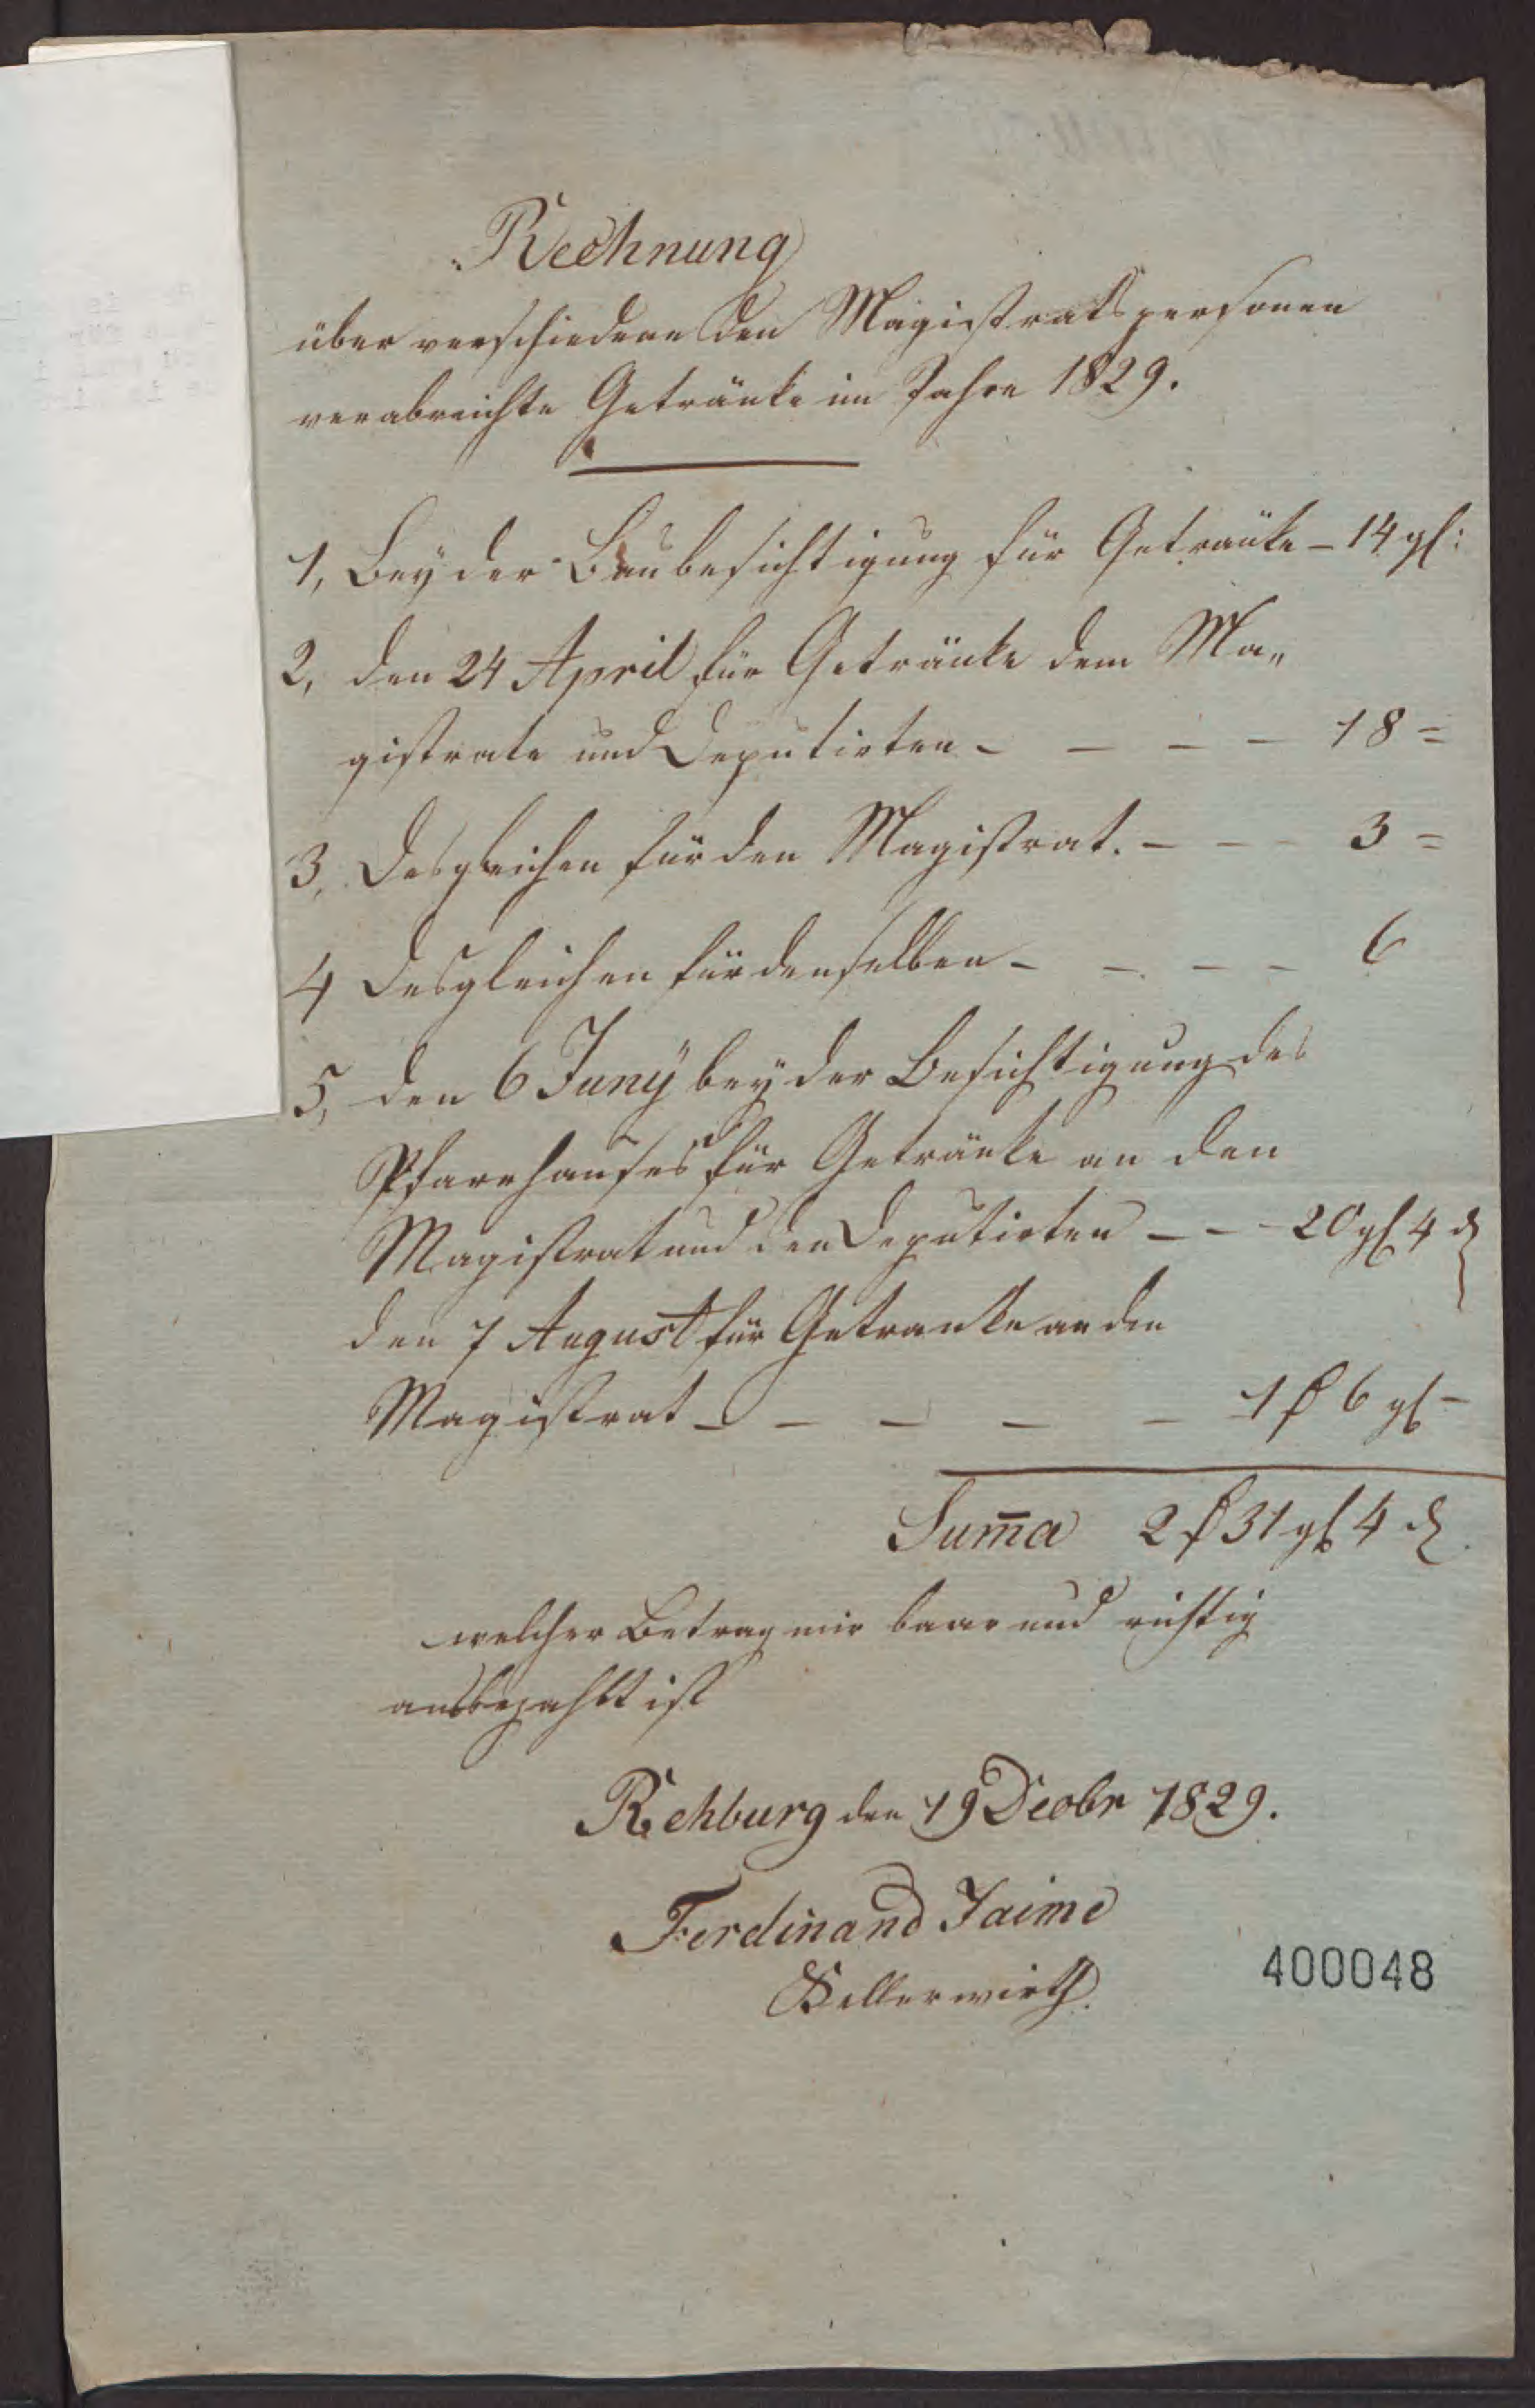 Rechnung
über verschiedene den Magistratspersonen
verabreichte Getränke im Jahre 1829.
1, Bey der Baubesichtigung für Getränke – 14 gl:
2, den 24 April für Getränke dem Ma„
gistrate und Deputirten – – – – 18 =
3, Desgleichen für den Magistrat. – – – 3 =
4 Desgleichen für denselben – – – – 6
5, den 6 Juny bey der Besichtigung des
Pfarrhauses für Getränke an den
Magistrat und den Deputirten – – – 20 gl 4 d
den 7 August für Getranke an den
Magistrat – – – – – 1 f 6 gl –
Sum̅a 2 f 31 gl 4 d
welcher Betrag mir baar und richtig
ausbezahlt ist
Rehburg den 19 Decbr 1829.
Ferdinand Jaime
Kellerwirth.
400048